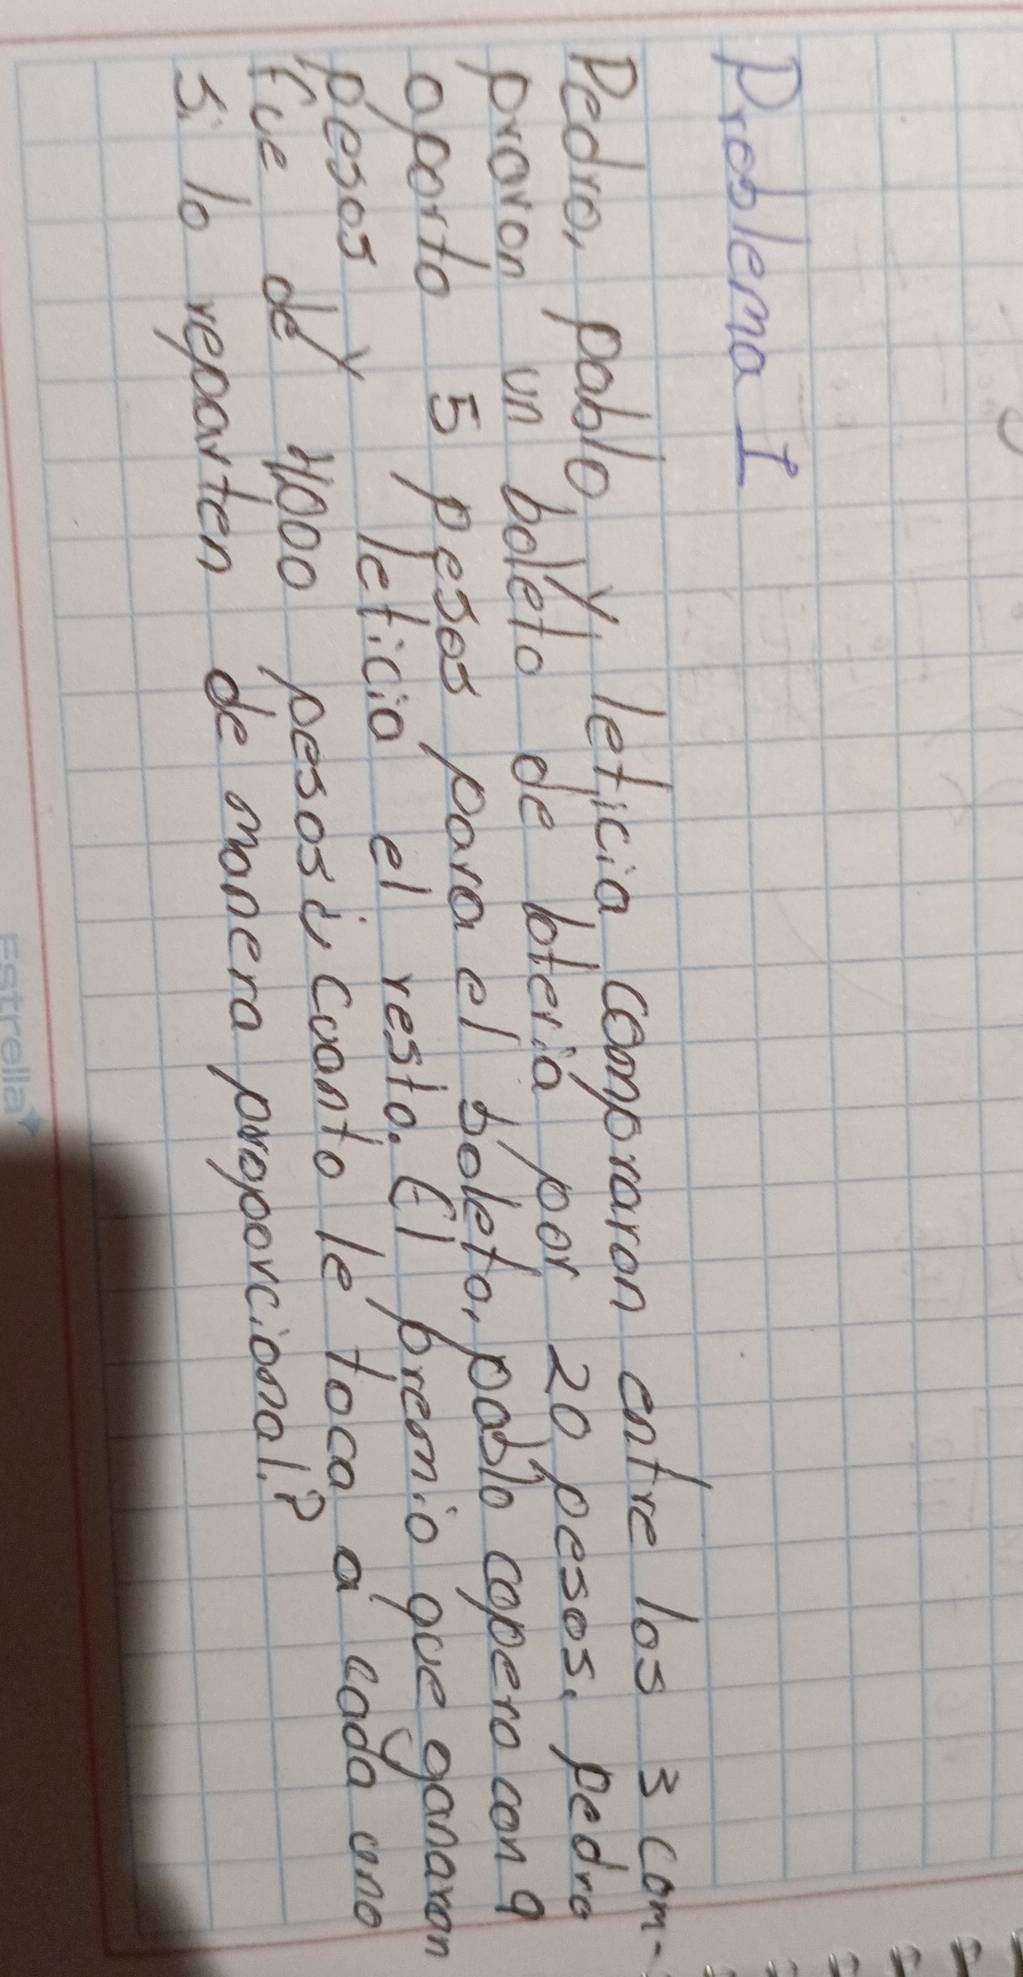 Problema 1
Pedro, pablo, y leticia comporaron entre los 3 com-
praron un boleto de loteria por 20 pesos. pedro
aporto 5 pesos para el boleto, pablo copero con 9
pesos y leticia el resto. El premio que ganaron
fue de 4000 pesos ¿, cuanto le toca a cada uno
si lo reparten de manera proporcional.?
Estrella